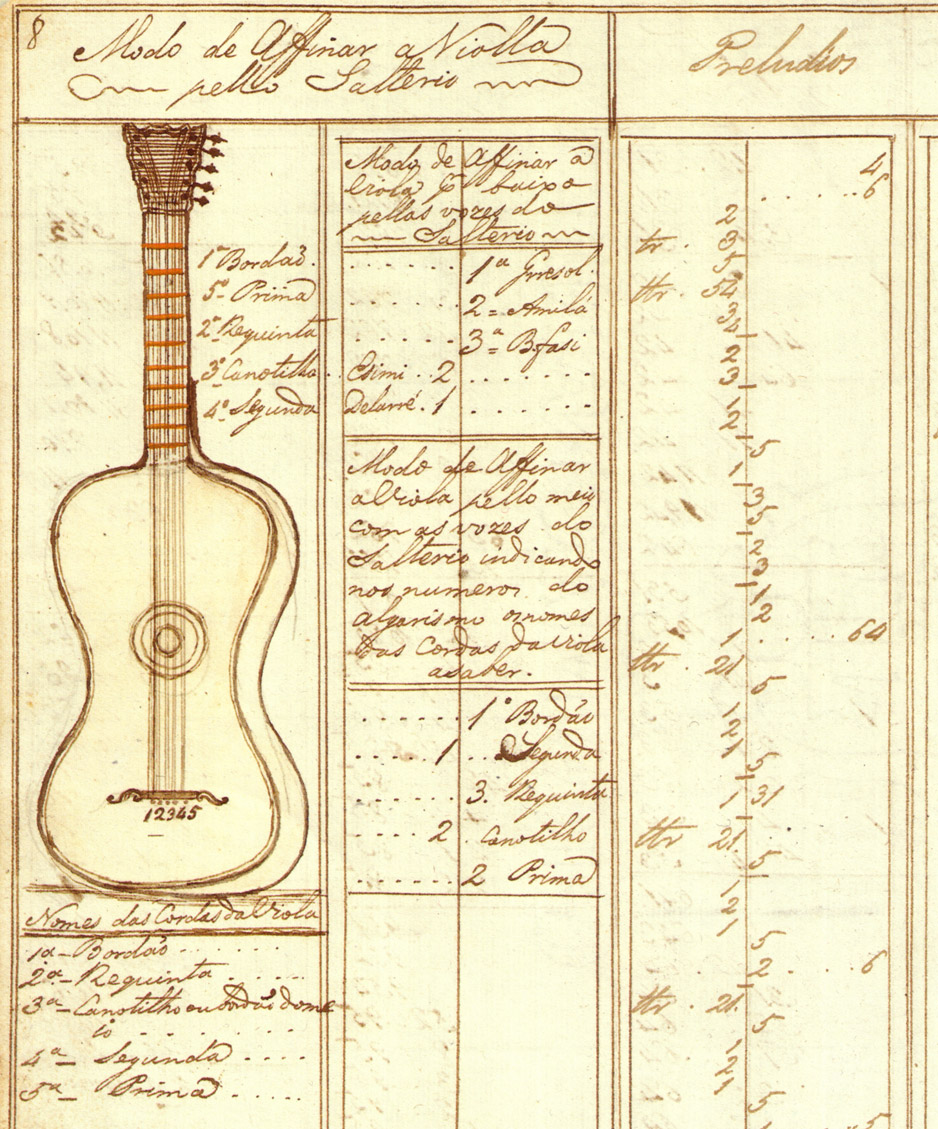 8
Modo de Affinar a Violla
pello Salterio
Preludios
1º Bordaõ.
5º Prima
2º Requinta
3º Canotilho
4º Segunda
12345
Nomes das Cordas da Viola
1ª - Bordaõ . . . . . . .
2ª - Requinta . . . . .
3ª - Canotilho ou bordaõ do me
io . . . . . . . .
4ª - Segunda . . . .
5ª - Prima . . . . .
Modo de Affinar a
Viola pº baixo
pellas vozes do
Salterio
. . . . . . 1ª Gresol.
. . . . . . 2ª Amilá
. . . . . . 3ª Bfasi
Esimi . . 2 . . . . . . .
Delarré . 1 . . . . . .
Modo de Affinar
a Viola pello meio
com as vozes do
Salterio indicando
nos numeros do
algarismo os nomes
das Cordas da Viola
a saber.
. . . . . . 1º Bordaõ
. . . . . 1 . . Segunda
. . . . . . . 3. Requinta
. . . . 2 . Canotilho
. . . . . . . 2 Prima
4
. . . . . 6
2
tr . 3
5
ttr . 54
3
4
2
3
1
2
1
5
1
1
3
5
2
3
1
2
1 . . . . . 64
ttr . 21
5
1
2
1
5
1 31
ttr 21
5
1
2
1
5
. . 2 . . . 6
ttr . 21
5
1
2
1
5
5